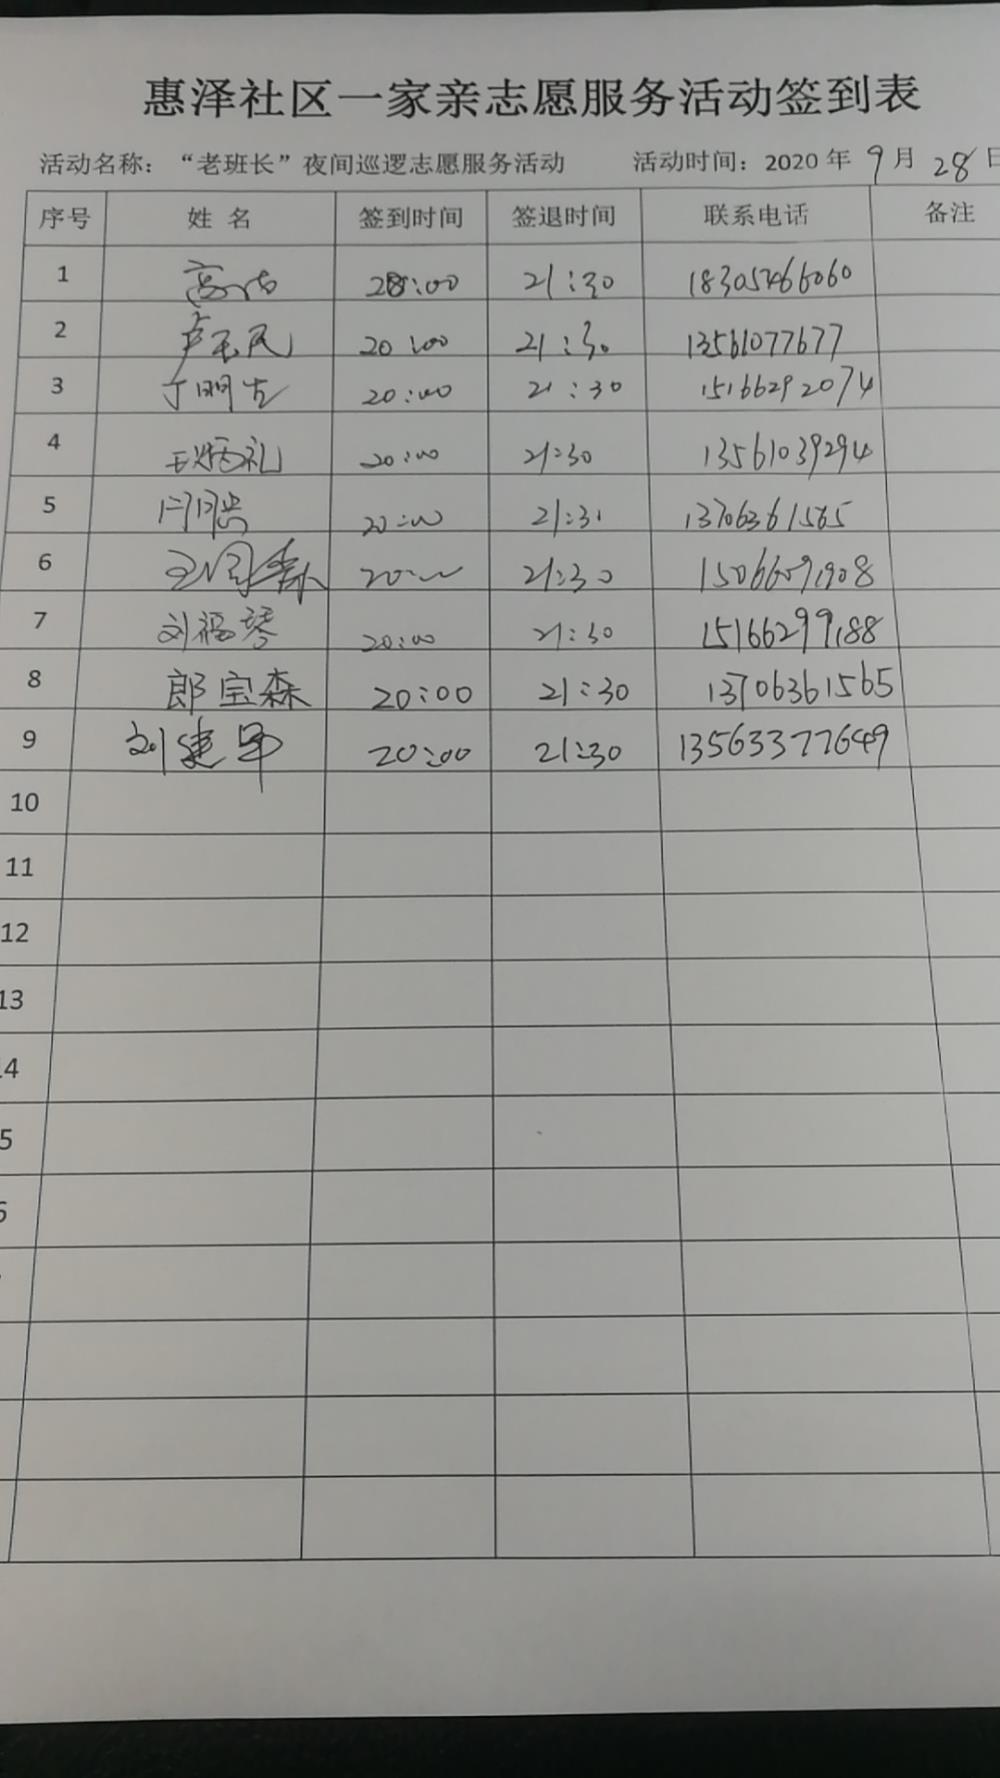 惠泽社区一家亲志愿服务活动签到表
活动名称：“老班长”夜间巡逻志愿服务活动 活动时间：2020 年 9 月 28 日
序号 姓 名 签到时间 签退时间 联系电话 备注
1 高洁 20:00 21:30 18305466060
2 卢玉民 20:00 21:30 13561077677
3 丁明吉 20:00 21:30 15166292074
4 王炳礼 20:00 21:30 13561039294
5 20:00 21:31 13706361565
6 20:00 21:30
7 刘福琴 20:00 21:30 15166299188
8 郎宝森 20:00 21:30 13706361565
9 刘建军 20:00 21:30 13563377649
10
11
12
13
14
5
6